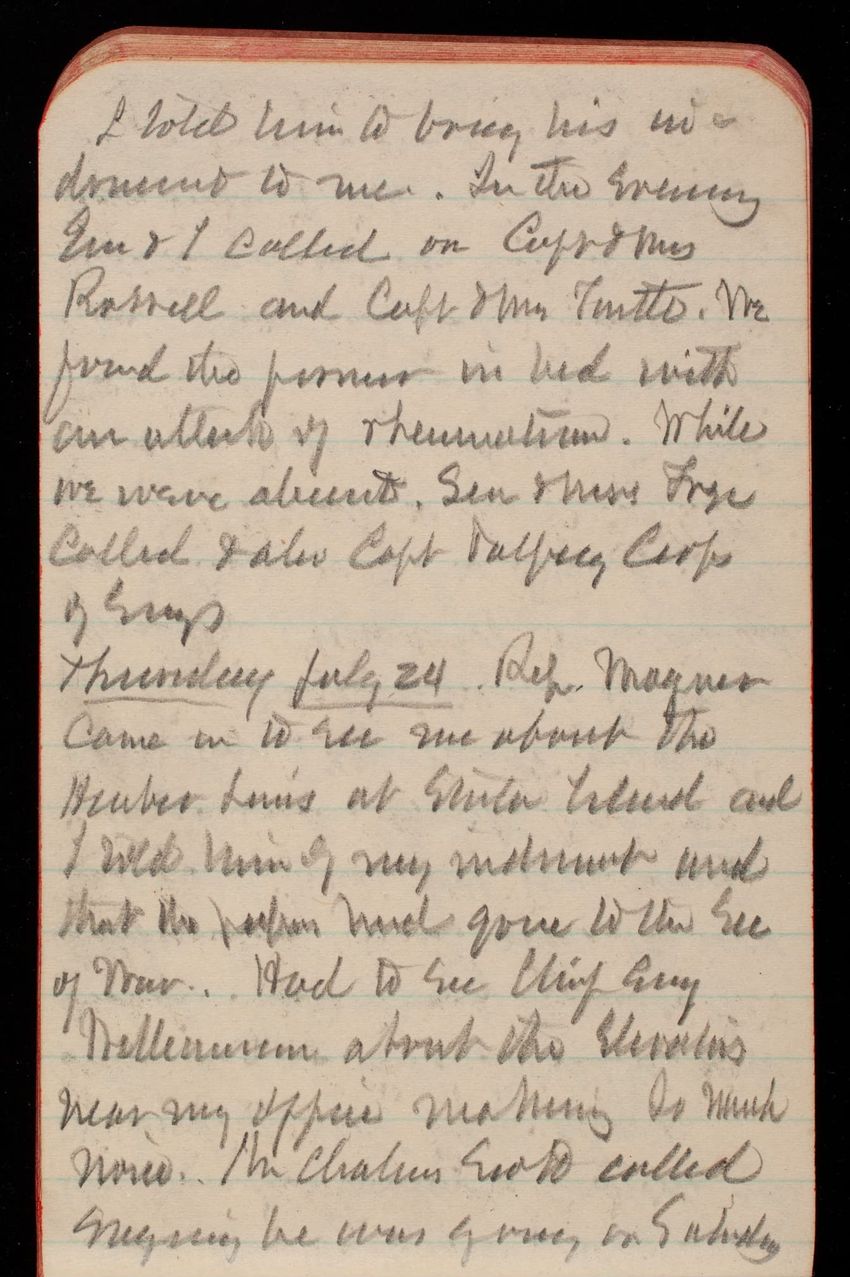 I told him to bring his in-
dorsement to me. In the Evening
Em & I called on Capt & Mrs
Rossell and Capt & Mrs Turtle. We
found the former in bed with
an attack of rheumatism. While
we were absent. Gen & Miss
Called & also Capt Corps
of Engs
Thursday July 24. Rep. Magner
Came in to see me about the
lines at Staten Island and
I told him of my indsmnt and
that the papers had gone to the Sec
of War.. Had to see Chief Eng
Williamson about the Elevators
near my office making so much
noise.. Mr Scott called
Saying he was going on Saturday